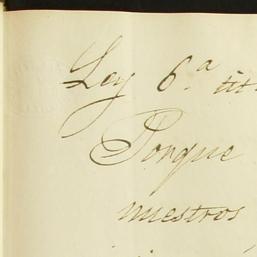 Ley 6.ª tit.
Porque
nuestros